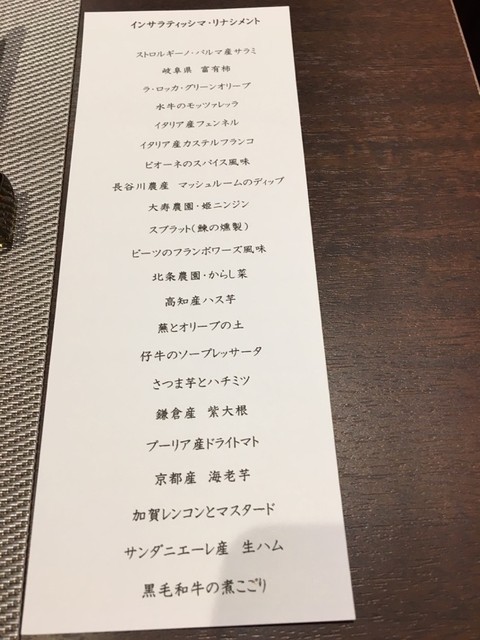 インサラティッシマ・リナシメント
ストロルギーノ・パルマ産サラミ
岐阜県 富有柿
ラ・ロッカ・グリーンオリーブ
水牛のモッツァレッラ
イタリア産フェンネル
イタリア産カステルフランコ
ピオーネのスパイス風味
長谷川農産 マッシュルームのディップ
大寿農園・姫ニンジン
スプラット(鰊の燻製)
ビーツのフランボワーズ風味
北条農園・からし菜
高知産ハス芋
蕪とオリーブの土
仔牛のソープレッサータ
さつま芋とハチミツ
鎌倉産 紫大根
プーリア産ドライトマト
京都産 海老芋
加賀レンコンとマスタード
サンダニエーレ産 生ハム
黒毛和牛の煮こごり